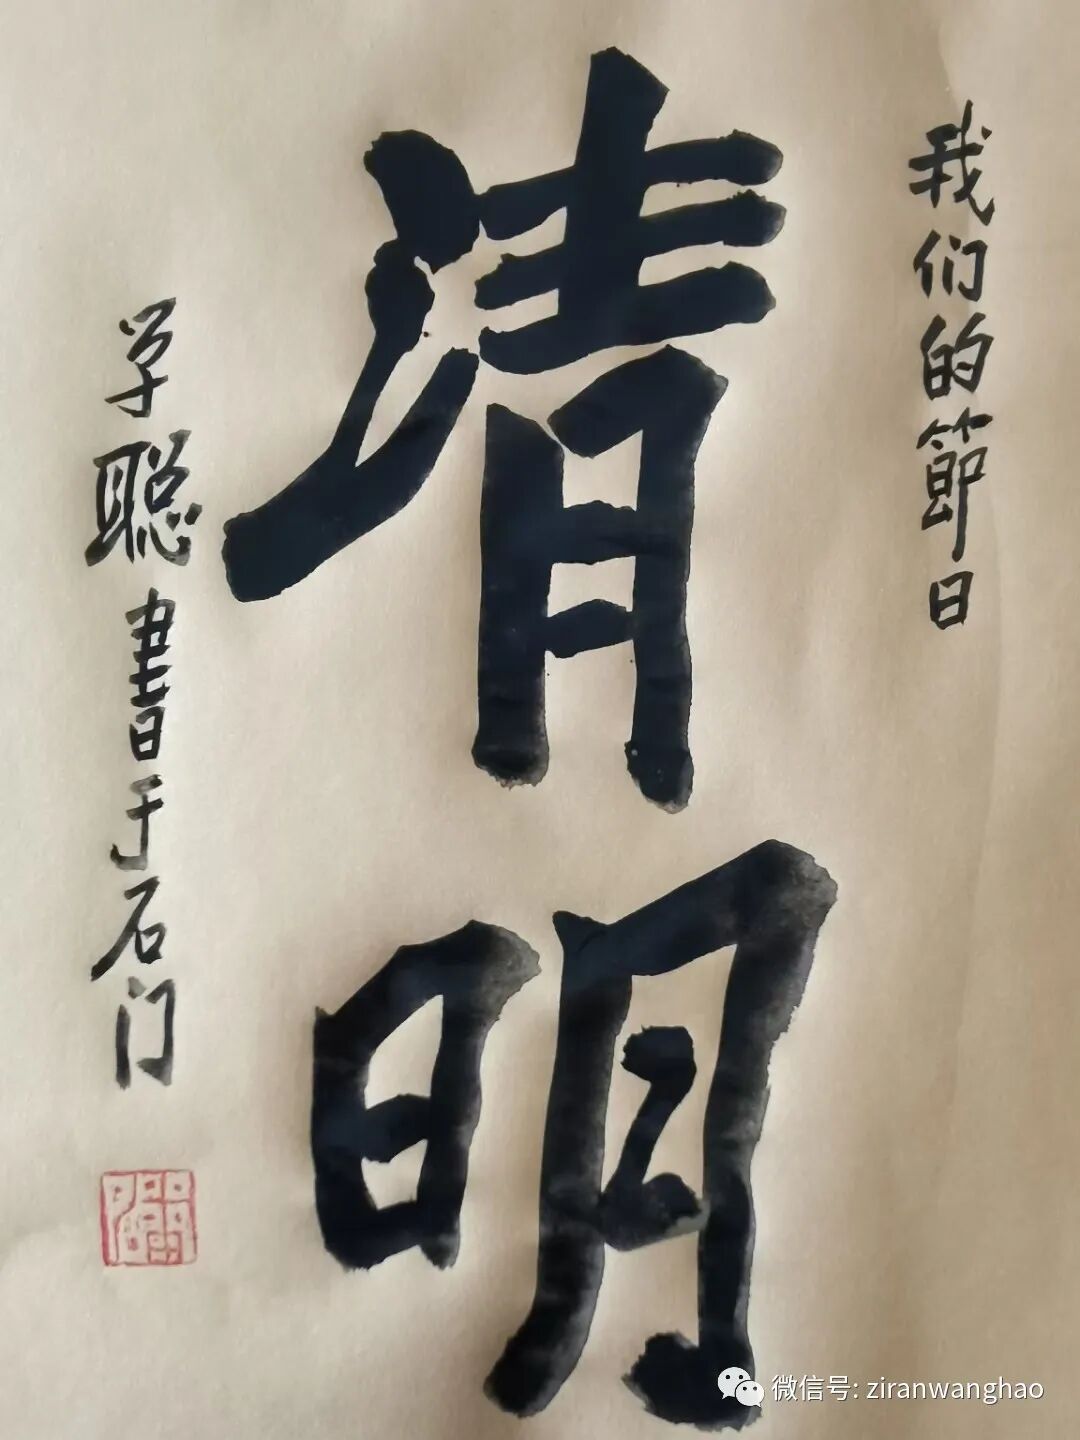 我们的節日
清明
学聪書于石门
微信号: ziranwanghao